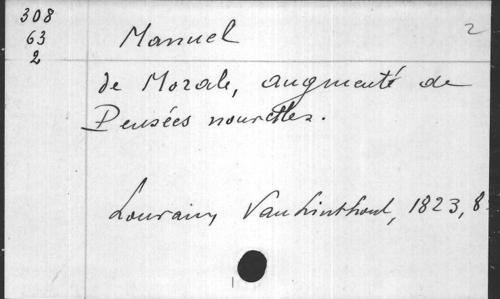 308
63
2
2
Manuel
de Morale, augmenté de
Pensées nouvelles.
Louvain, Vanlinthout, 1823, 8